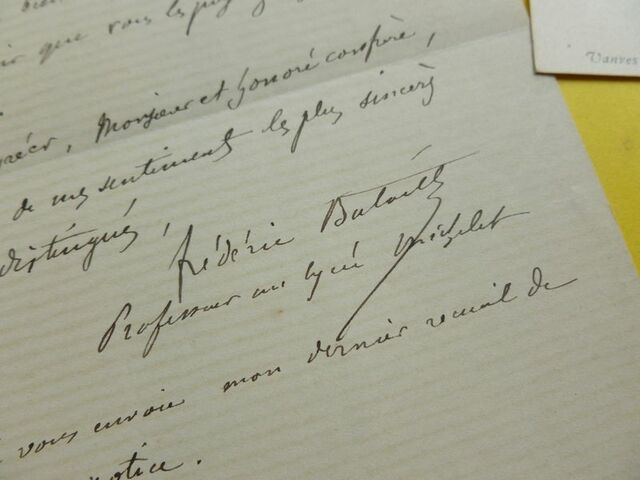 que vous les
Monsieur et honoré confrère,
de mes sentiments les plus sincères
distingués,
Frédéric Bataille
Professeur au lycée Michelet
vous envoie mon dernier recueil de
notice.
Vanves